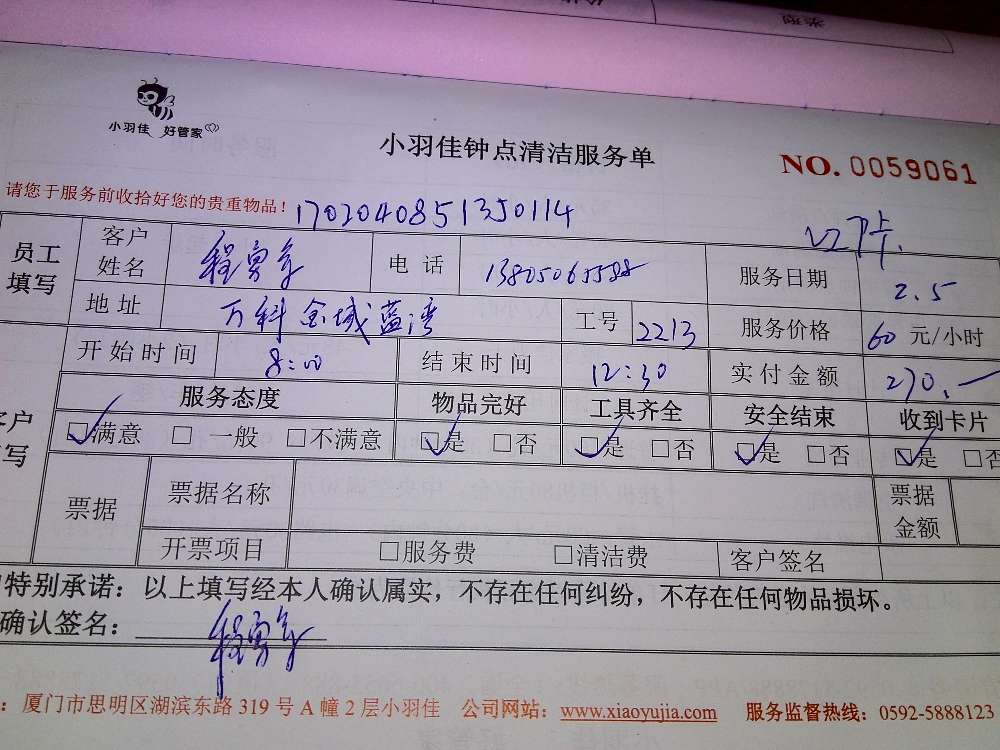 小羽佳 好管家
小羽佳钟点清洁服务单
NO. 0059061
请您于服务前收拾好您的贵重物品！ 1702040851350114
员工填写 客户姓名 程勇 电话 服务日期 2.5
地址 万科金域蓝湾 工号 2213 服务价格 60 元/小时
开始时间 8:00 结束时间 12:30 实付金额 270.一
服务态度 物品完好 工具齐全 安全结束 收到卡片
☑满意 □一般 □不满意 ☑是 □否 ☑是 □否 ☑是 □否 ☑是 □否
票据 票据名称 票据金额
开票项目 □服务费 □清洁费 客户签名
特别承诺：以上填写经本人确认属实，不存在任何纠纷，不存在任何物品损坏。
确认签名： 程勇
：厦门市思明区湖滨东路 319 号 A 幢 2 层小羽佳 公司网站：www.xiaoyujia.com 服务监督热线：0592-5888123